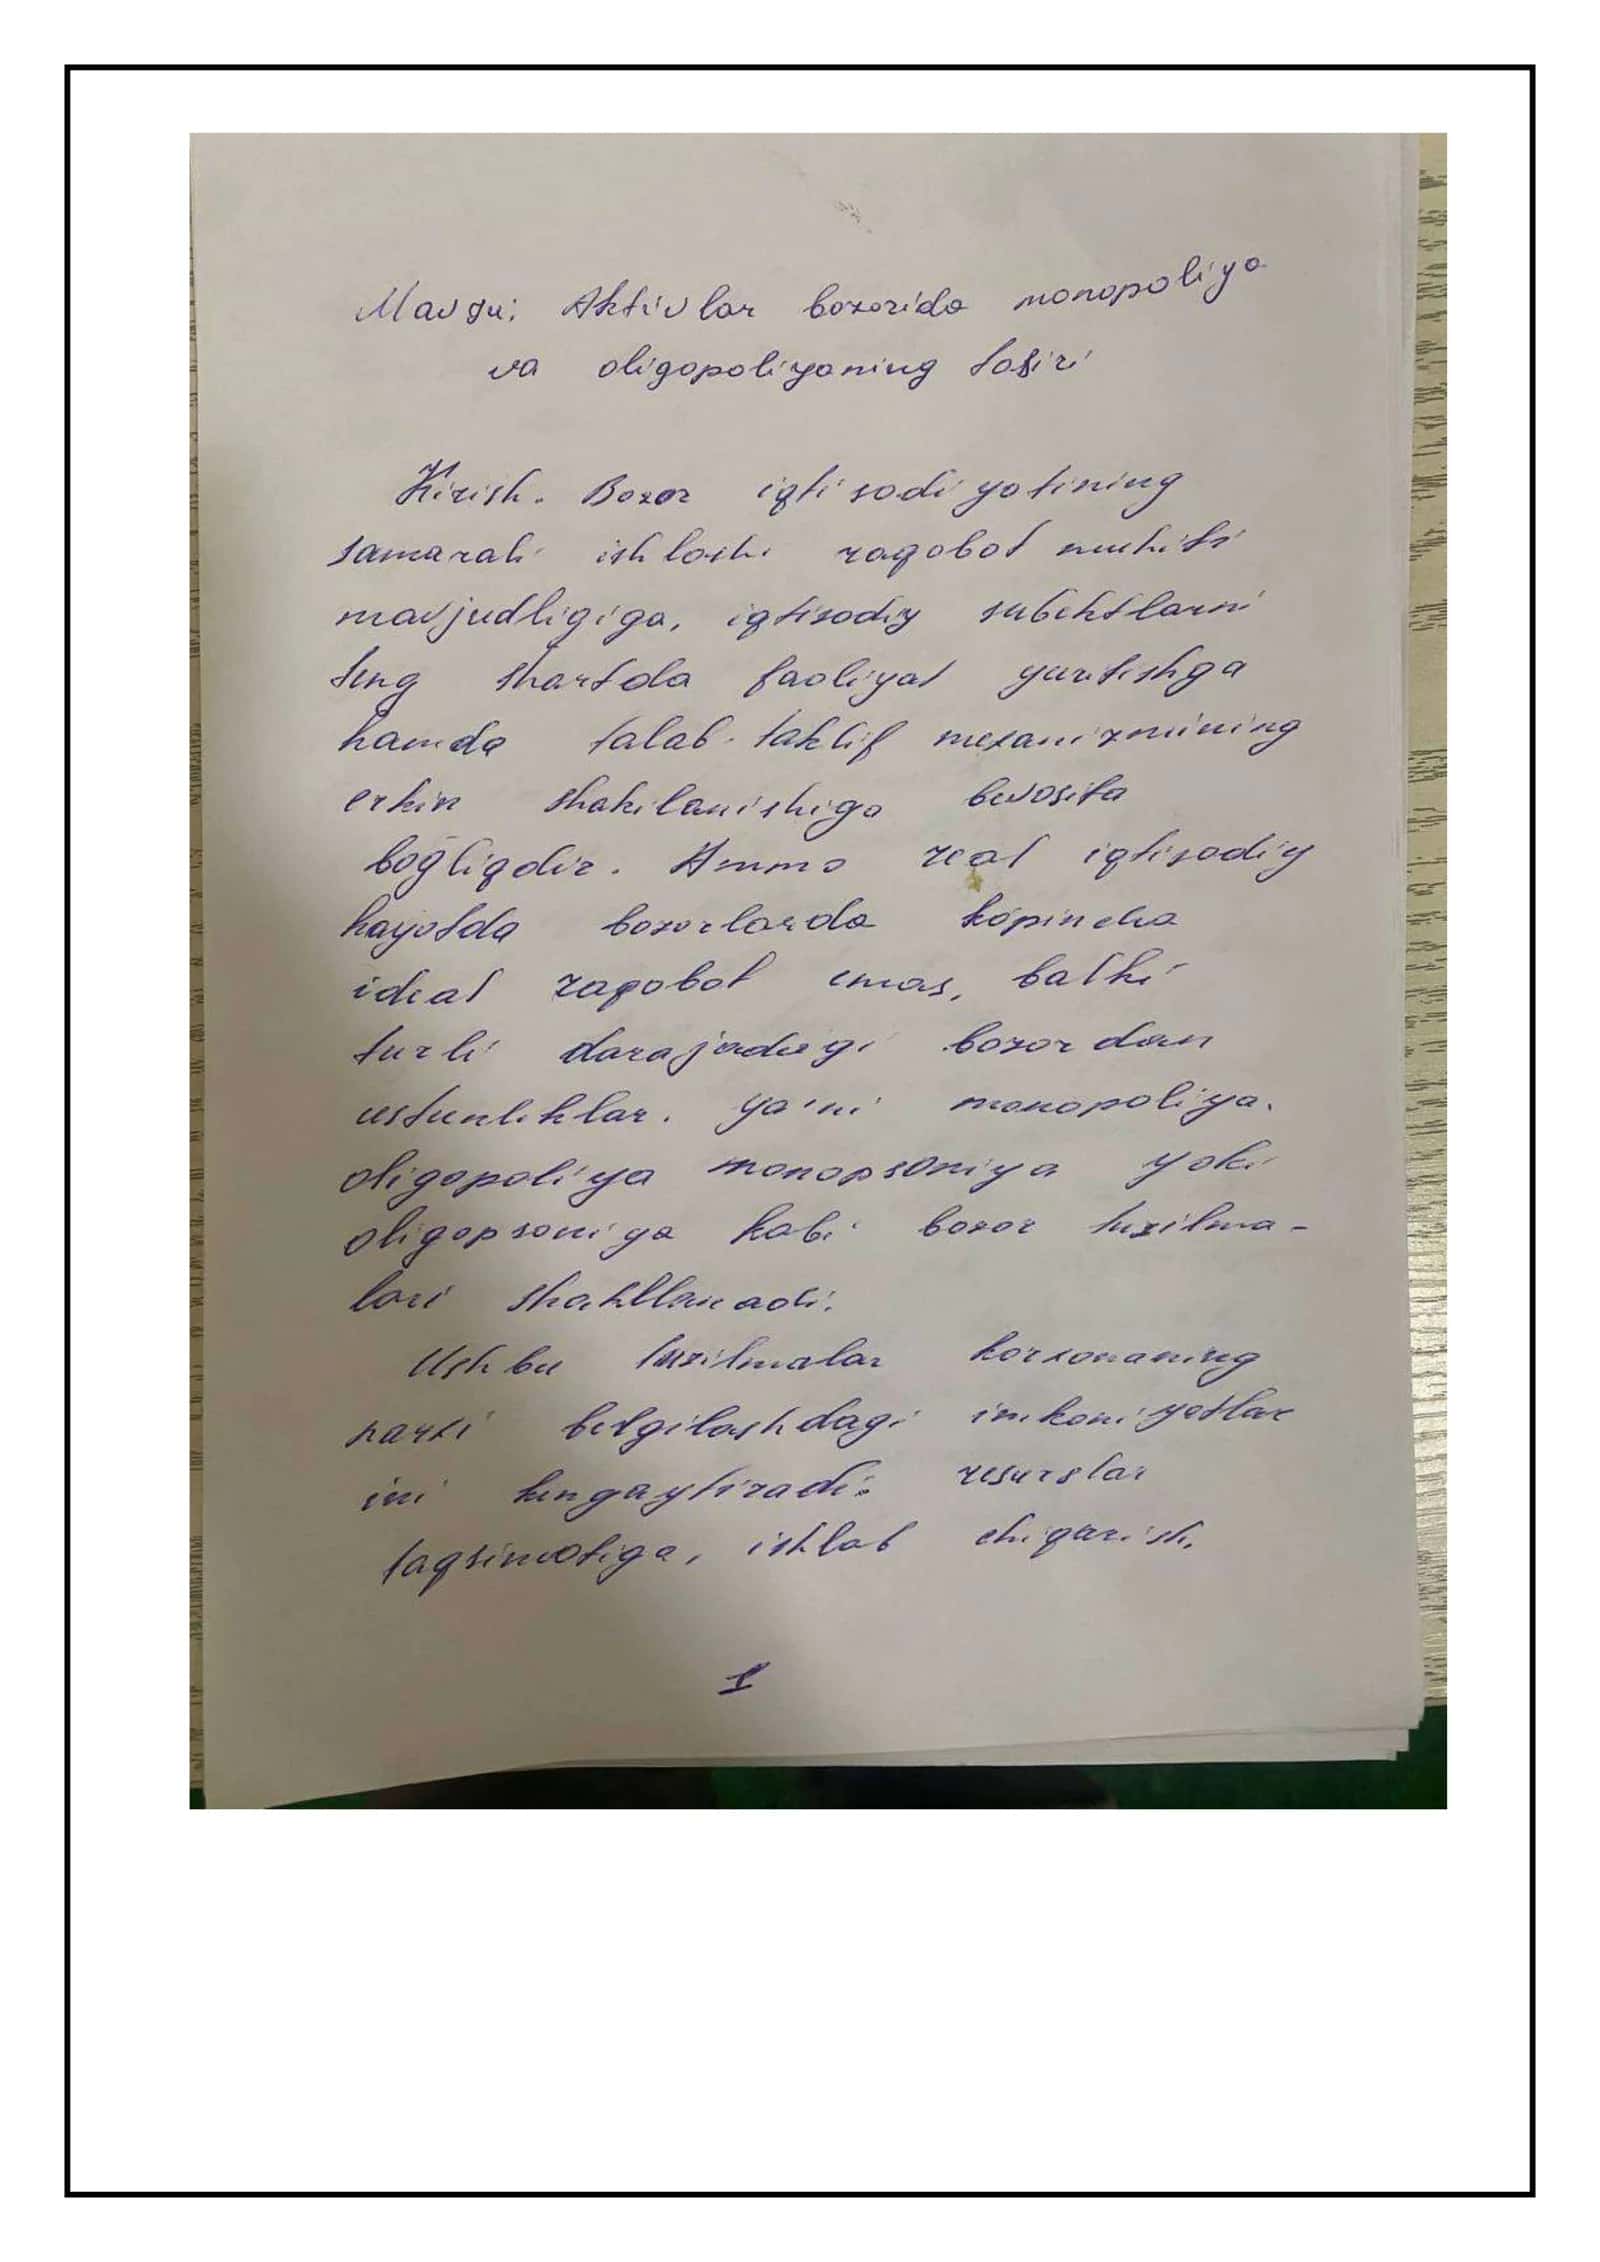 Mavzu: Aktivlar bozorida monopoliya
va oligopoliyaning tasiri
Kirish. Bozor iqtisodiyotining
samarali ishlashi raqobot muhiti
mavjudligiga, iqtisodiy subektlarni
teng shartda faoliyat yuritishga
hamda talab-taklif mexanizmining
erkin shakilanishiga bevosita
boģliqdir. Ammo real iqtisodiy
hayotda bozorlarda kópincha
ideal raqobot emas, balki
turli darajadagi bozordan
ustunliklar. ya'ni monopoliya.
oligopoliya monopsoniya yoki
oligopsoniya kabi bozor tuzilma-
lari shakllanadi.
Ushbu tuzilmalar korxonaning
narxi belgilashdagi imkoniyotlar
ini kengaytiradi. resurslar
taqsimotiga, ishlab chiqarish,
1